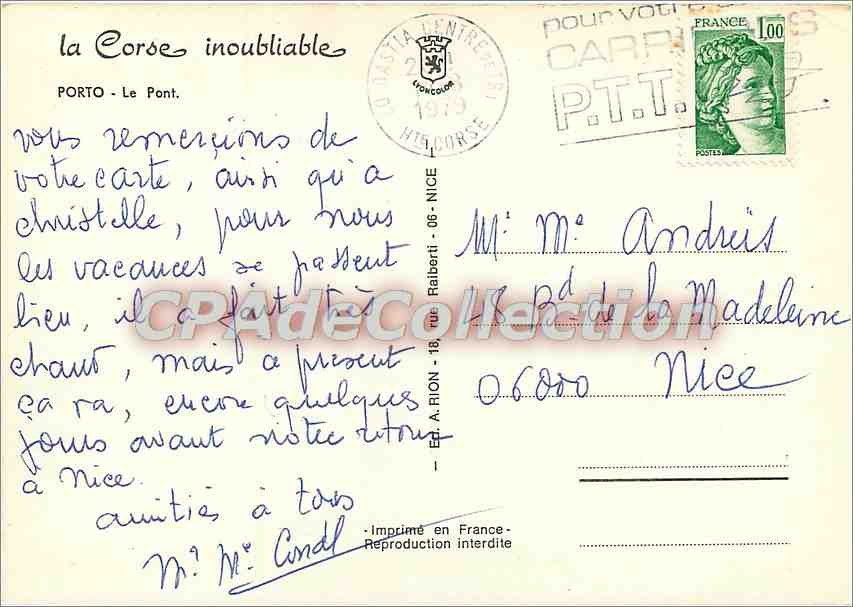 la Corse inoubliable
PORTO - Le Pont.
vous remerçions de
votre carte, ainsi qu'a
christelle, pour nous
les vacances se passent
bien, il a fait très
chaud, mais a present
ça va, encore quelques
jours avant notre retour
à Nice.
amitiés à tous
Mr Me
BASTIA CENTRE
1979
Hte CORSE
LYONCOLOR
pour vot
CARR
P.T.T.
FRANCE
1,00
POSTES
Ed. A. RION - 18, rue Raiberti - 06 - NICE
Mr Me Andreis
48 Bd de la Madeleine
06000 Nice
- Imprimé en France -
Reproduction interdite
CPAdeCollection